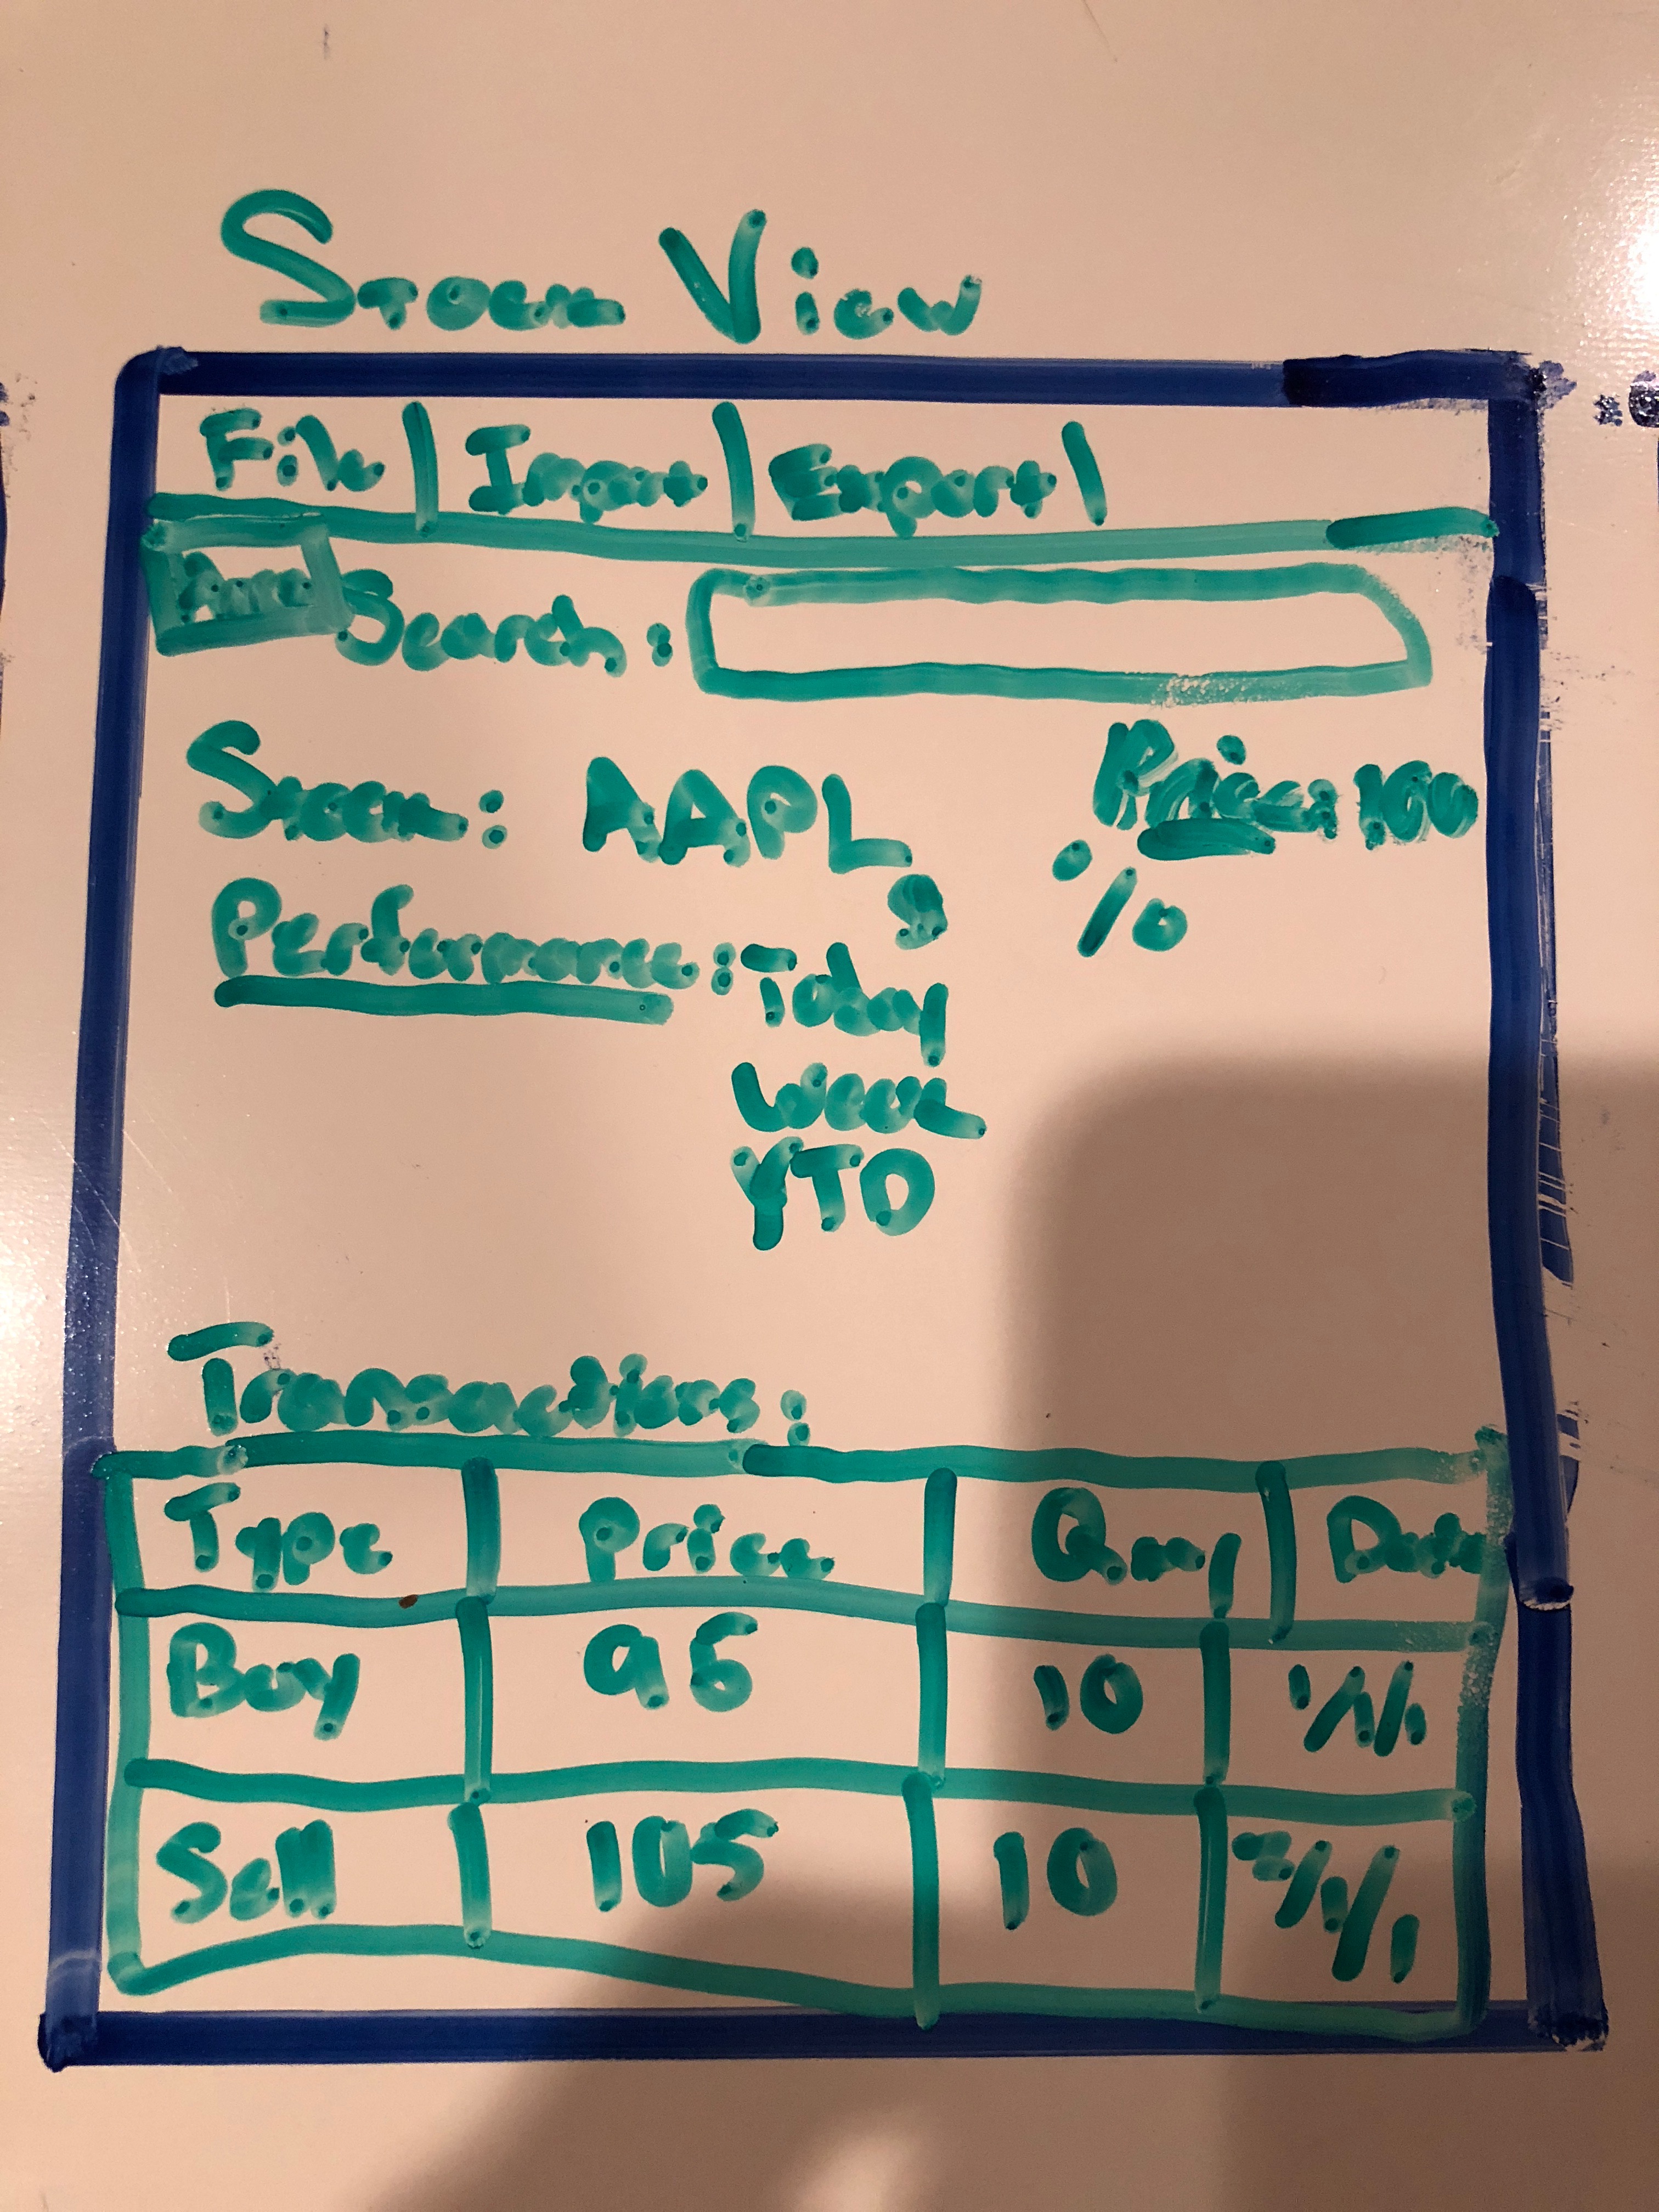 Stock View
File | Import | Export |
Search:
Stock: AAPL Price: 100
Performance: $ %
Today
Week
YTD
Transactions:
Type Price Qnty Date
Buy 95 10 1/1/1
Sell 105 10 2/1/1